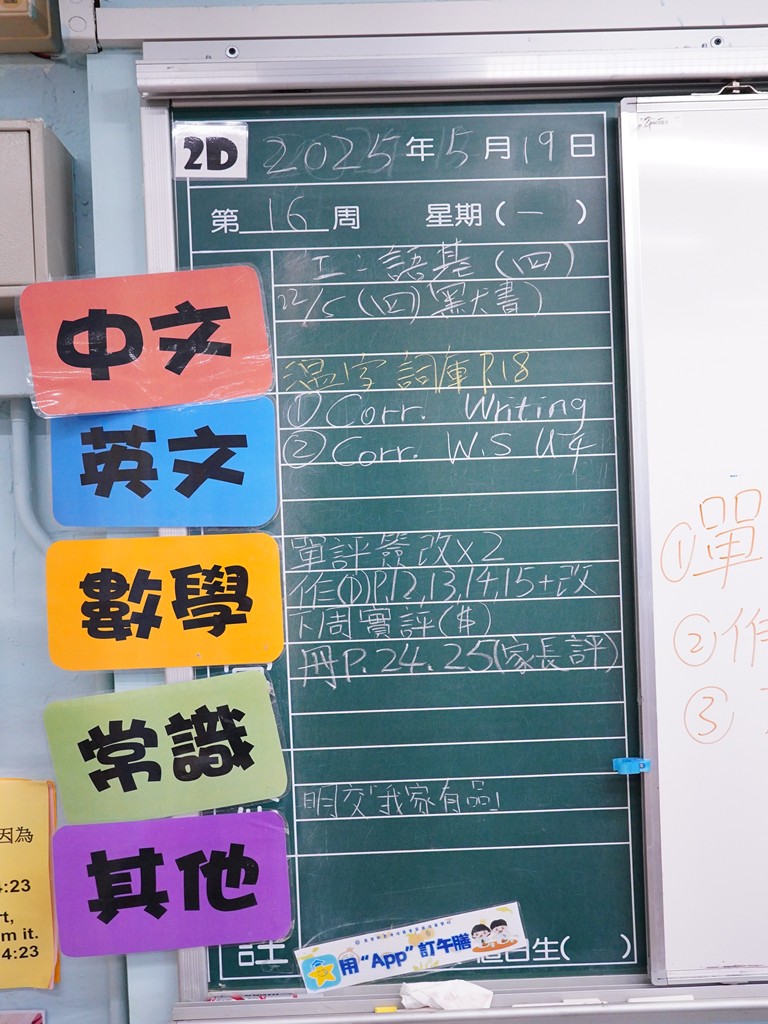 2D 2025年5月19日
第16周 星期(一)
中文
工:語基(四)
22/5(四)(黑犬書)
溫字詞庫P.18
英文
①Corr. Writing
②Corr. W.S U4
數學
單評簽改x2
作(下)P.12,13,14,15+改
下周實評($)
常識
冊P.24.25(家長評)
其他
明交"我家有品"
註
用"App"訂午膳
日生( )
因為
4:23
m it.
4:23
①單
②作
③